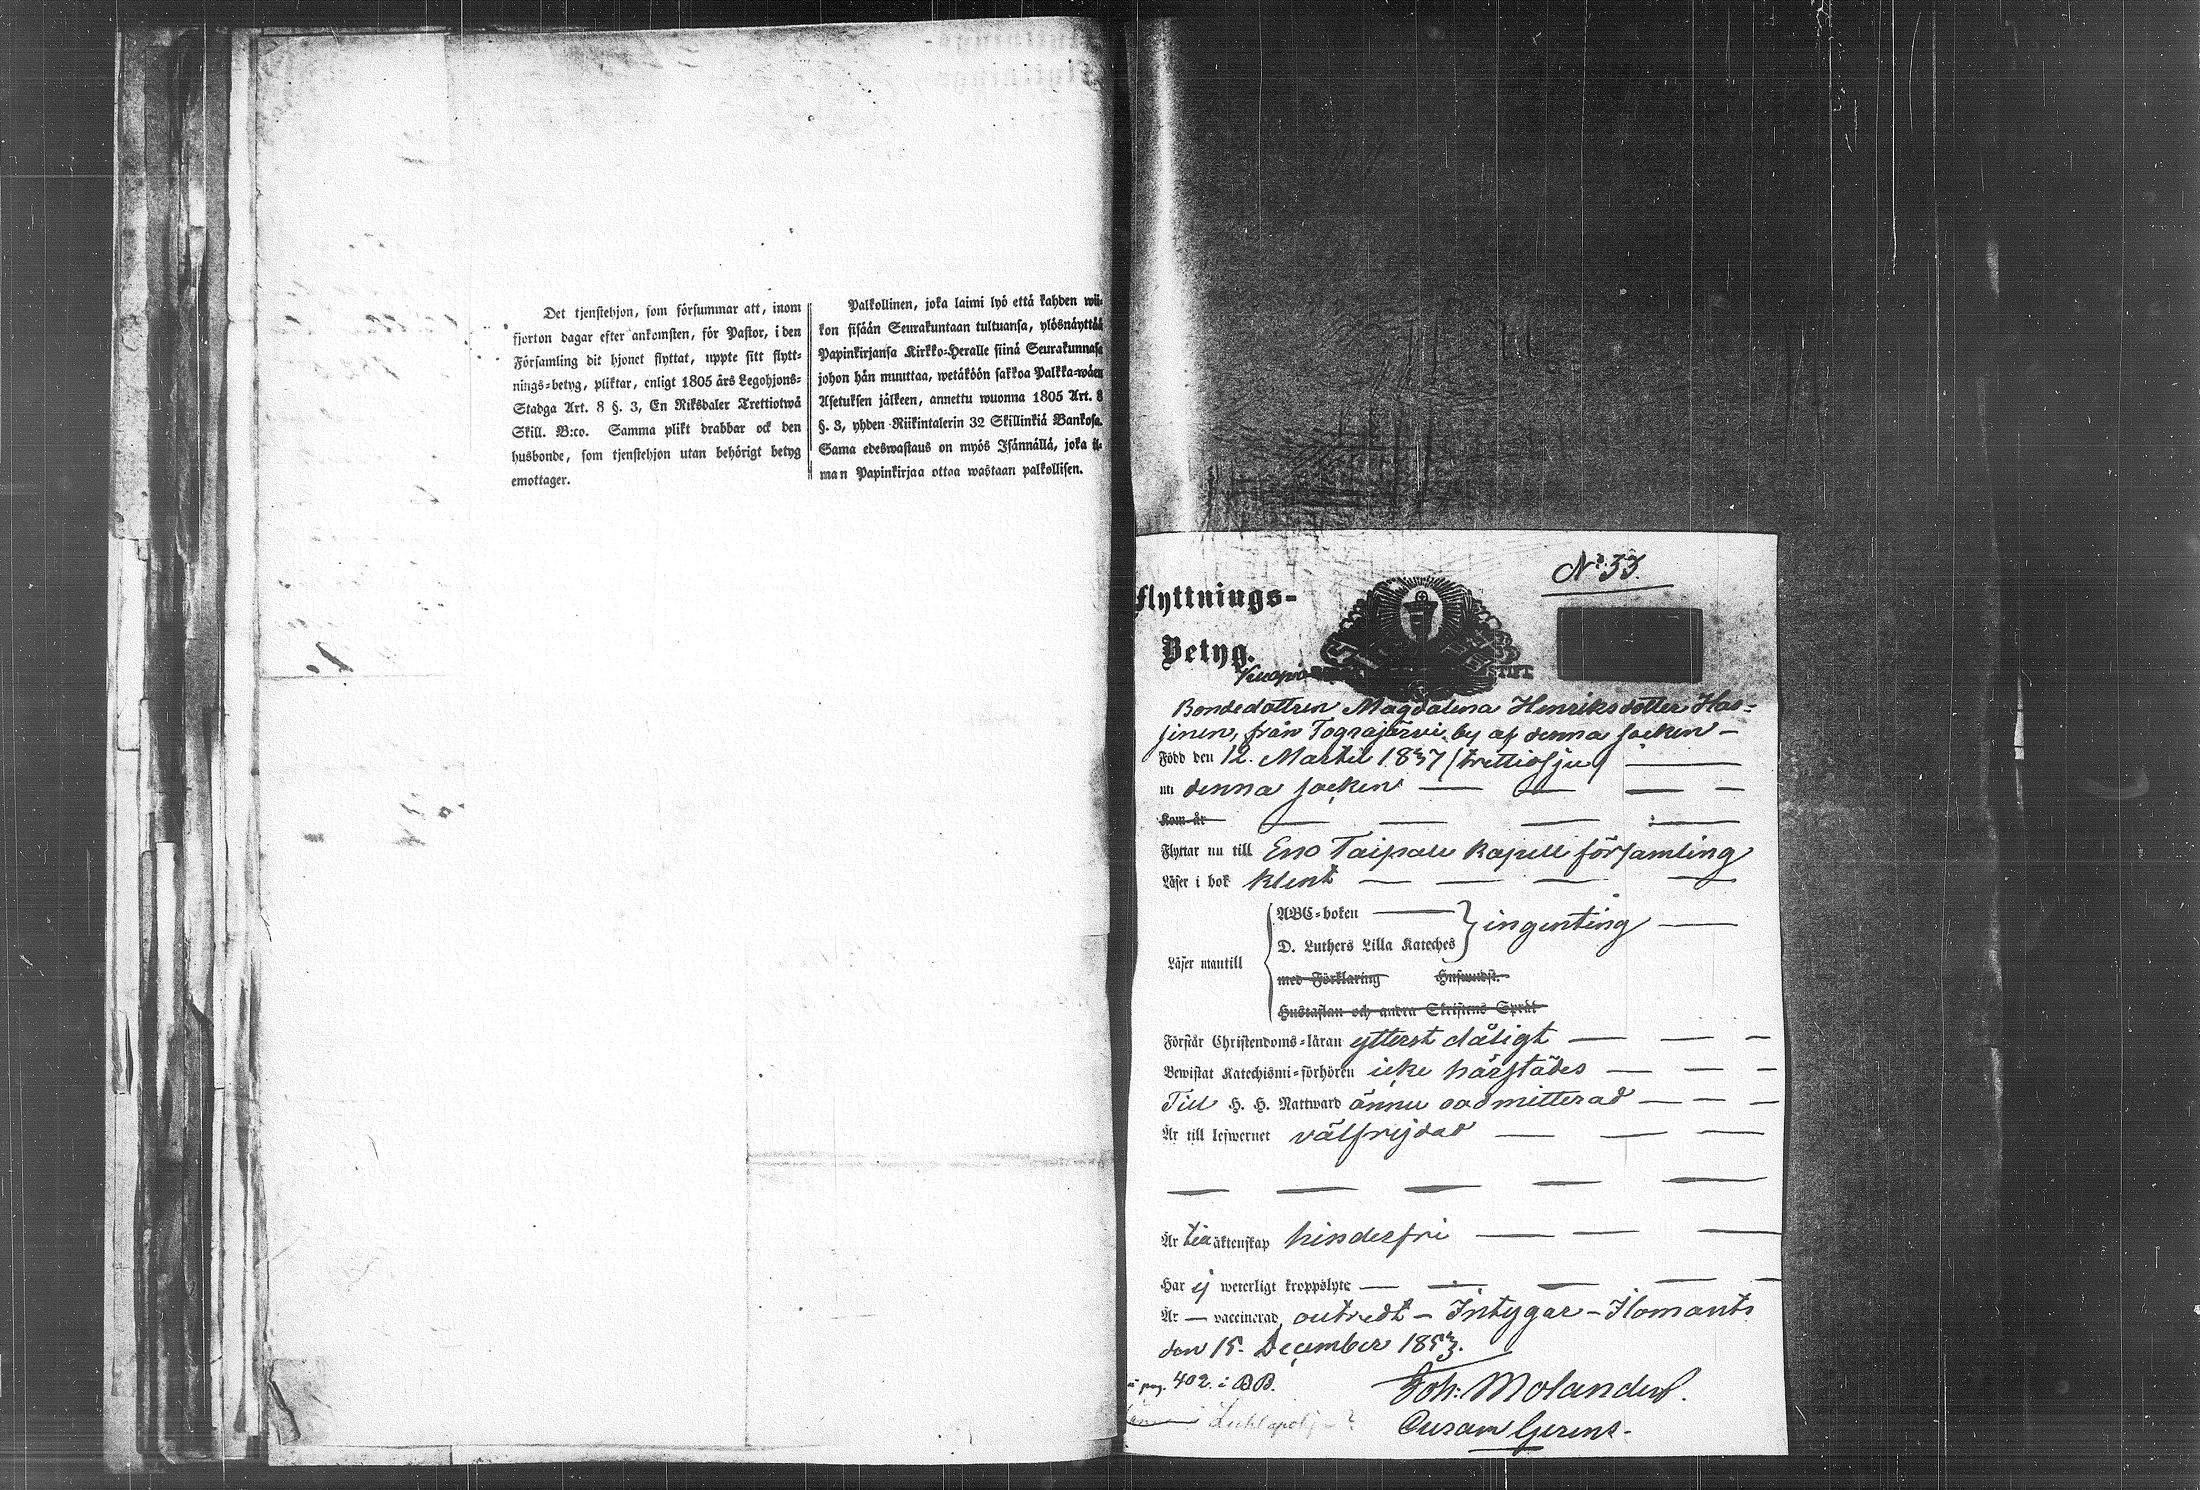 Det tjenstehjon, som försummar att, inom
fjorton dagar efter ankomsten, för Pastor, i den
Församling dit hjonet flyttat, uppte sitt flytt-
nings-betyg, pliktar, enligt 1805 års Legohjons-
Stadga Art. 8 §. 3, En Riksdaler Trettiotwå
Skill. B:co. Samma plikt drabbar ock den
husbonde, som tjenstehjon utan behörigt betyg
emottager.
Palkollinen, joka laimi lyö että kahden wii-
kon sisään Seurakuntaan tultuansa, ylösnäyttää
Papinkirjansa Kirkko-Heralle siinä Seurakunnasa
johon hän muuttaa, wetäköön sakkoa Palkka-wäen
Asetuksen jälkeen, annettu wuonna 1805 Art. 8
§. 3, yhden Riikintalerin 32 Skillinkiä Bankosa.
Sama edeswastaus on myös Isännällä, joka il-
man Papinkirjaa ottaa wastaan palkollisen.
No 33.
Flyttnings-
Betyg.
Bondedottren Magdalena Henriksdotter Has-
sinen, från Tograjärvi by af denna socken –
Född den 12. Martii 1837 (trettiosju)
uti denna socken
Kom år
Flyttar nu till Eno Taipale Kapell församling
Läser i bok klent
ABC-boken
ingenting
D. Luthers Lilla Kateches
Läser utantill
med Förklaring
Hustaflan och andra Skriftens Språk
Förstår Christendoms-läran ytterst dåligt
Bewistat Katechismi-förhören icke härstädes
Till H. H. Nattward ännu oadmitterad
Är till lefwernet välfrejdad
Är till äktenskap hinderfri
Har ej weterligt kroppslyte
Är – vaccinerad, outredt – Intygar – Ilomants
den 15. December 1853.
pag. 402. i BB.
Joh: Molander